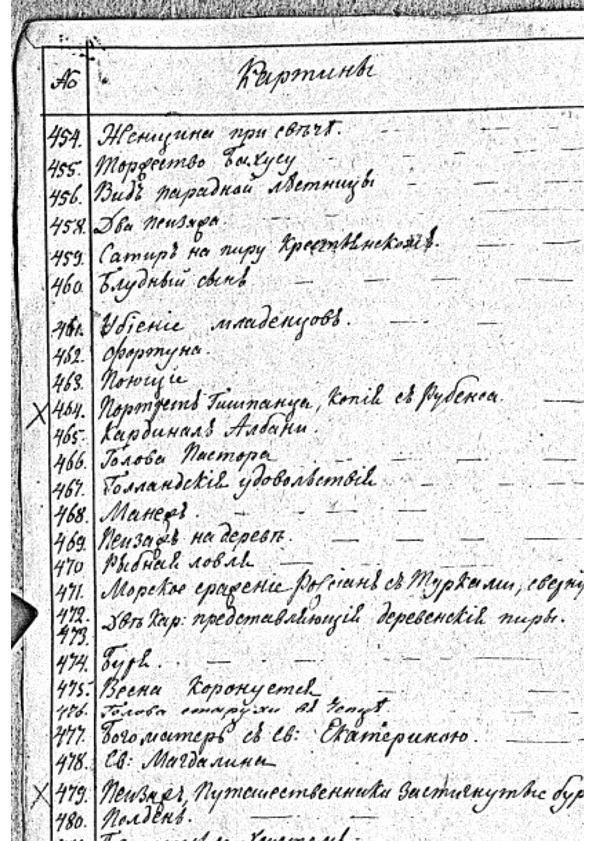 № Картины
454. Женщина при свѣчѣ.
455. Торжество Бахусу
456. Видъ парадной лѣстницы
458. Два пейзажа.
459. Сатиръ на пиру Крестьянскомъ.
460. Блудный сынъ
461. Убіеніе младенцовъ.
462. Фортуна.
463. Поющіе
464. Портретъ Гишпанца, копія съ Рубенса.
465. Кардиналъ Албани.
466. Голова Пастора
467. Голландскія удовольствія
468. Манежъ.
469. Пейзажъ на деревѣ.
470 Рыбная ловля
471. Морское сраженіе Россіянъ съ Турками,
472. 473. Двѣ Кар: представляющія деревенскія пиры.
474. Буря.
475. Весна Коронуется
476. Голова старухи въ чепцѣ.
477. Богоматерь съ Св: Екатериною.
478. Св: Магдалина
479. Пейзажъ, Путешественники застигнутые бур
480. Полдень.